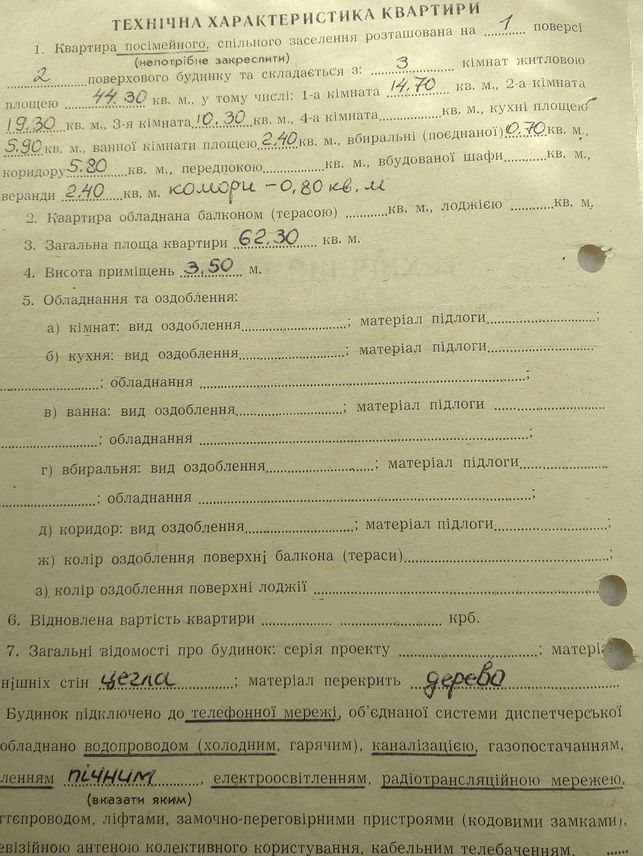 ТЕХНІЧНА ХАРАКТЕРИСТИКА КВАРТИРИ
1. Квартира посімейного, спільного заселення розташована на 1 поверсі
(непотрібне закреслити)
2 поверхового будинку та складається з: 3 кімнат житловою
площею 44.30 кв. м., у тому числі: 1-а кімната 14.70 кв. м., 2-а кімната
19.30 кв. м., 3-я кімната 10.30 кв. м., 4-а кімната кв. м., кухні площею
5.90 кв. м., ванної кімнати площею 2.40 кв. м., вбиральні (поєднаної) 0.70 кв. м.,
коридору 5.80 кв. м., передпокою кв. м., вбудованої шафи кв. м.,
веранди 2.40 кв. м. комори – 0,80 кв. м
2. Квартира обладнана балконом (терасою) кв. м., лоджією кв. м.
3. Загальна площа квартири 62.30 кв. м.
4. Висота приміщень 3.50 м.
5. Обладнання та оздоблення:
а) кімнат: вид оздоблення ; матеріал підлоги ;
б) кухня: вид оздоблення ; матеріал підлоги
; обладнання ;
в) ванна: вид оздоблення ; матеріал підлоги
; обладнання ;
г) вбиральня: вид оздоблення ; матеріал підлоги
; обладнання ;
д) коридор: вид оздоблення ; матеріал підлоги ;
ж) колір оздоблення поверхні балкона (тераси) ;
з) колір оздоблення поверхні лоджії
6. Відновлена вартість квартири крб.
7. Загальні відомості про будинок: серія проекту ; матеріа
ніших стін цегла ; матеріал перекрить дерево
Будинок підключено до телефонної мережі, об'єднаної системи диспетчерської
обладнано водопроводом (холодним, гарячим), каналізацією, газопостачанням,
ленням пічним, електроосвітленням, радіотрансляційною мережею,
(вказати яким)
ттєпроводом, ліфтами, замочно-переговірними пристроями (кодовими замками),
евізійною антеною колективного користування, кабельним телебаченням,